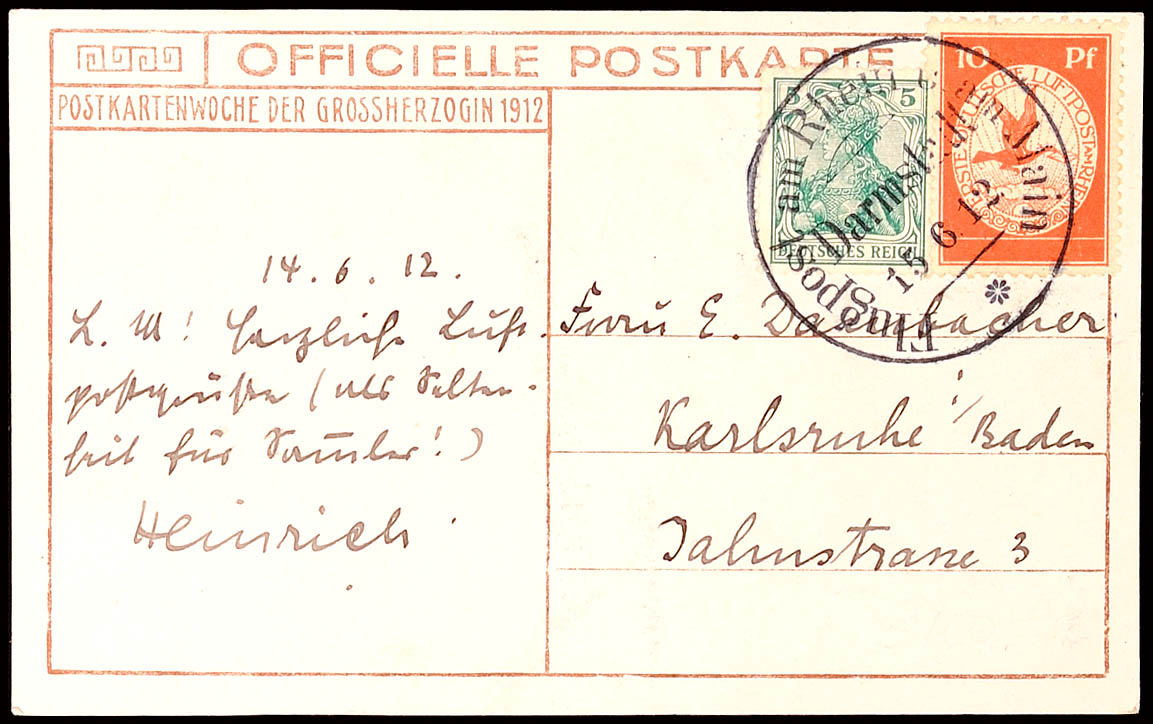 OFFICIELLE POSTKARTE
POSTKARTENWOCHE DER GROSSHERZOGIN 1912
5
DEUTSCHES REICH
10 Pf
ERSTE DEUTSCHE LUFTPOST AM RHEIN
Flugpost am Rhein u. am Main
Darmstadt
15 6. 12
14. 6. 12.
L. M! Herzliche Luft-
postgrüße (als Selten-
heit für Samler!)
Heinrich.
Frau E.
Karlsruhe i/Baden
Jahnstrasse 3